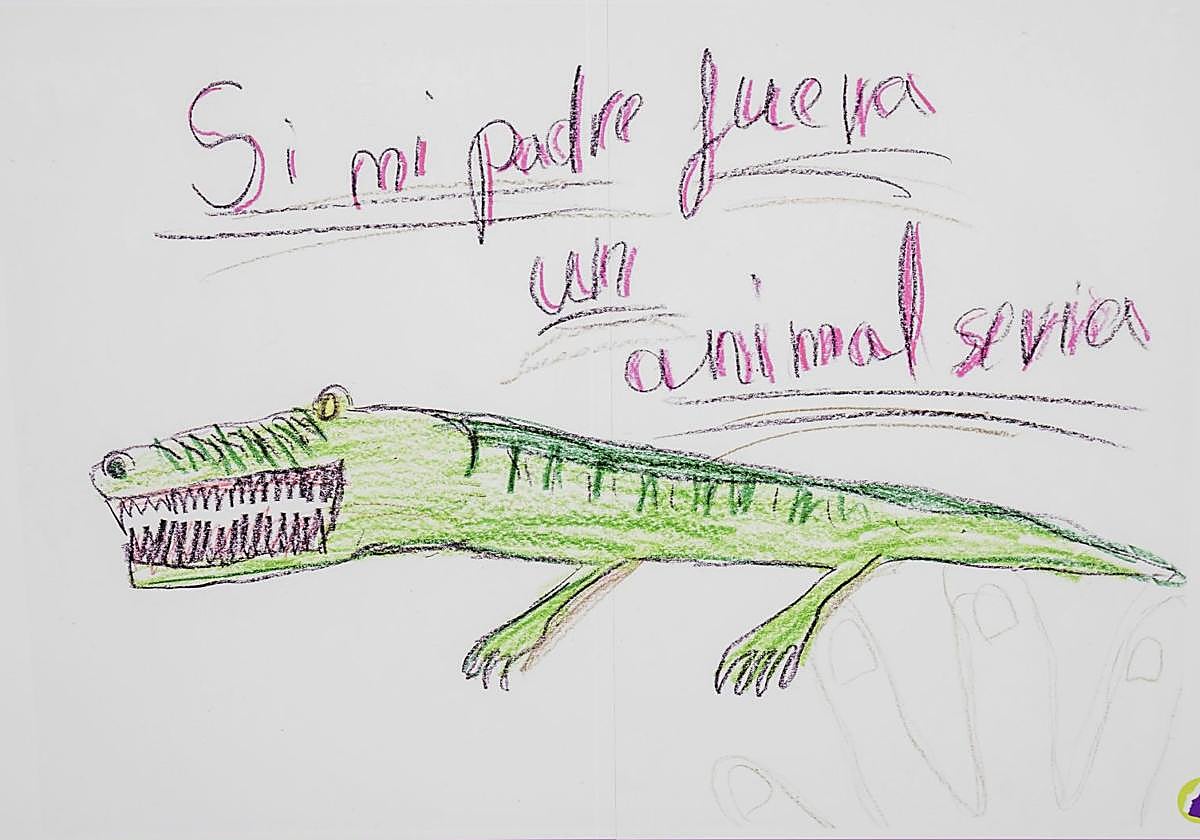 Si mi padre fuera
un
animal seria